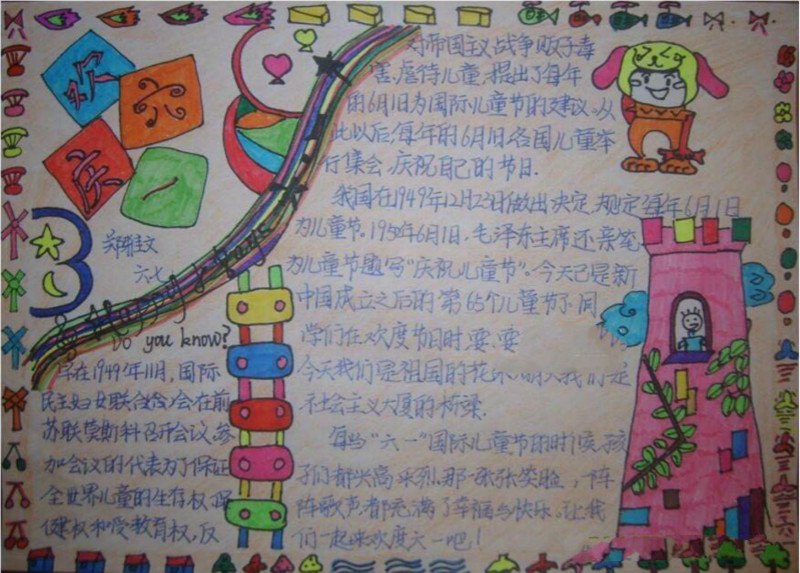 欢
六
庆
一
六七
Happy 6 days
Do you know?
早在1949年11月,国际
民主妇女联合会在前
苏联莫斯科召开会议,参
加会议的代表为了保证
全世界儿童的生存权,保
健权和受教育权,反
对帝国主义战争贩子毒
害,虐待儿童,提出了每年
的6月1日为国际儿童节的建议。从
此以后,每年的6月1日,各国儿童举
行集会,庆祝自己的节日.
我国在1949年12月23日做出决定,规定每年6月1日
为儿童节.1950年6月1日,毛泽东主席还亲笔
为儿童节题写“庆祝儿童节”。今天已是新
中国成立之后的第65个儿童节了,同
学们在欢度节日时,要,要
今天我们是祖国的花
社会主义大厦的桥梁.
每当“六一”国际儿童节的时候,孩
子们都兴高采烈,那一张张笑脸,一阵
阵歌声都充满了幸福与快乐。让我
们一起来欢度六一吧!